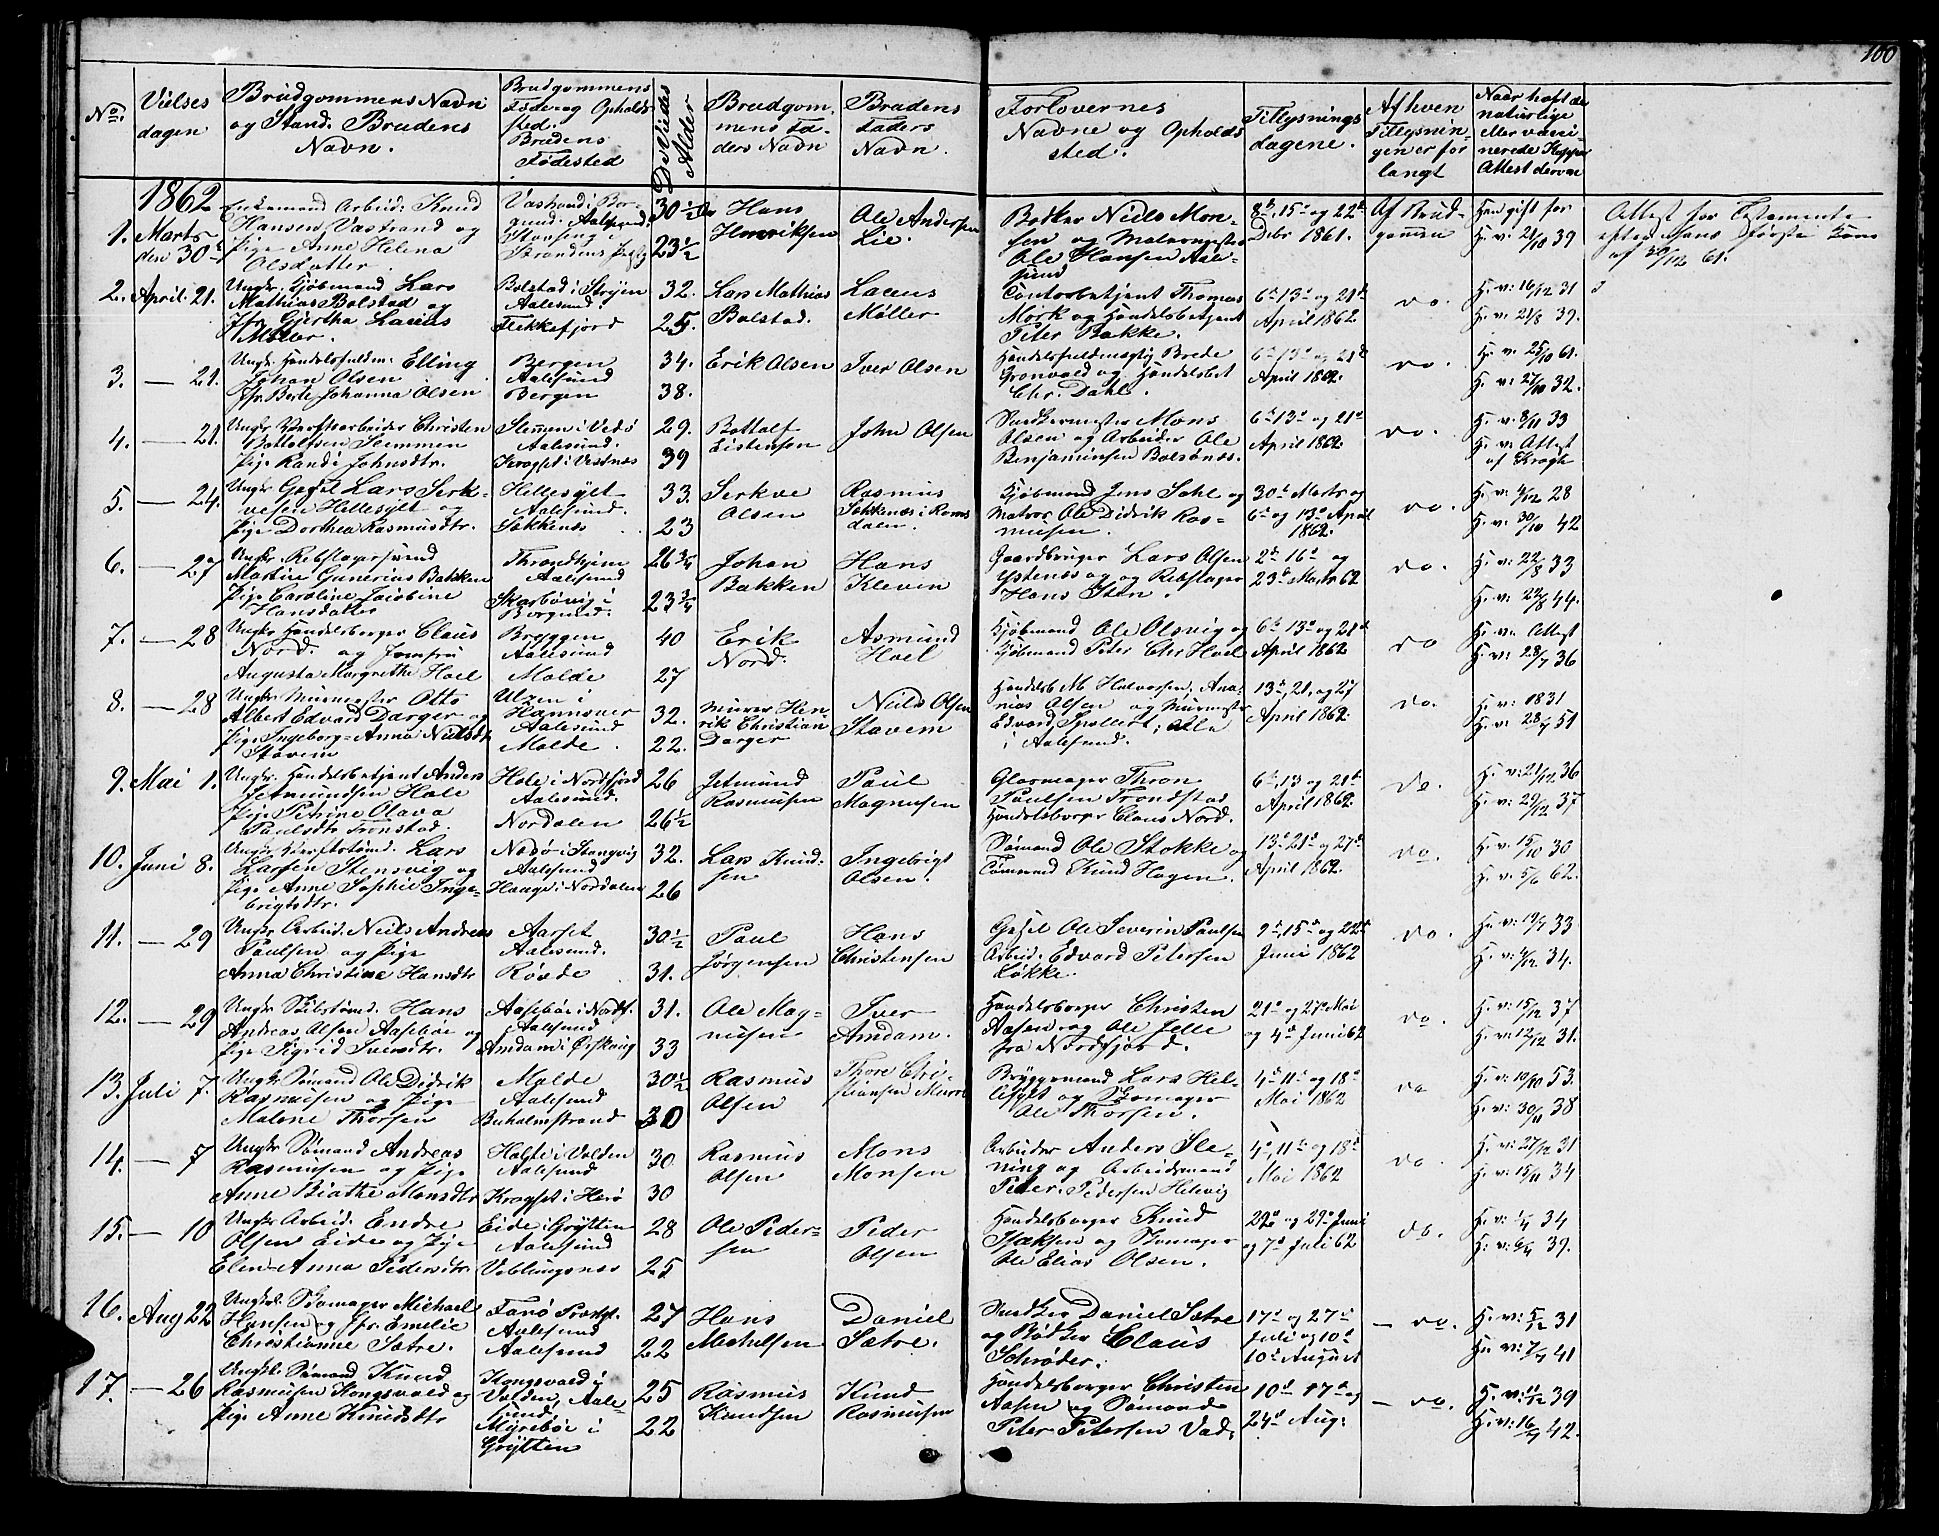 100
No.
Vielses
dagen
Brudgommens Navn
og Stand. Brudens
Navn.
Brudgommens
Føde og Opholds
sted.
Brudens
Fødested
De Viedes
Alder
Brudgom
mens Fa-
ders Navn
Brudens
Faders
Navn.
Forlovernes
Navne og Opholds
sted.
Tillysnings
dagene.
Af hvem
Tillysnin-
gen er for
langt
Naar haft de
naturlige
eller vacci-
nerede Kopper
Attest derom
1862
1. Marts
den 30d
Enkemand Arbeid: Knud
Hansen Vastrand og
Pige Anne Helena
Olsdatter
Vastrand i Bor-
gund: Aalesund
30½
23½
Hans
Henriksen
Ole Andersen
Lie.
Bødker Niels Mon-
sen og Malermester
Ole Hansen Aale-
sund
8d, 15d og 22d
Debr 1861.
Af Brud-
gommen
Har gift før
H. v. 21/10 39
Attest for Testamente
efter hans første Kone
af 30/12 61.
2. April 21.
Ungkr. Kjøbmand Lars
Mathias Bolstad og
Jfr Gjertha Lauras
Møller.
Bolstad i Stryen
Aalesund.
Flekkefjord
32.
25.
Lars Mathias
Bolstad.
Laurus
Møller
Contorbetjent Thomas
Mørk og Handelsbetjent
Peter Bakke.
6d 13d og 21d
April 1862
do.
H. v: 16/12 31
H. v. 21/8 39.
3. — 21.
Ungkr. Handelsfuldm: Elling
Johan Olsen
Jfr. Berte Johanna Olsen
Bergen
Aalesund
Bergen
34.
38.
Erik Olsen
Iver Olsen
Handelsfuldmægtig Brede
Grønvold og Handelsbet
Chr. Dahl.
6d 13d og 21d
April 1862.
do.
H. v. 25/10 61.
H. v: 27/10 32.
4. — 21.
Ungkr Værftsarbeider Christen
Bottolfsen Slemmen
Pige Randi Johnsdtr.
Slemmen i Vedø
Aalesund.
Kragset i Vestnæs
29.
39
Bottolf
Eistensen
John Olsen
Snedkermester Mons
Olsen og Arbeider Ole
Benjaminsen Bolsønæs.
6d 13d og 21d
April 1862.
do.
H. v: 8/11 33
H. v: Attest
af Krogh
5. — 24.
Ungkr Gesel Lars Serk-
vesen Hellesylt og
Pige Dorthea Rasmusdtr.
Hellesylt
Aalesund.
Søkkenes
33.
23
Serkve
Olsen
Rasmus
Søkkenæs i Roms
dalen.
Kjøbmand Jens Dahl og
Matros Ole Didrik Ras-
musen.
30d Marts og
6d og 13d April
1862.
do.
H. v. 4/12 28
H. v. 30/10 42
6. — 27
Ungkr. Rebslagersvend
Martin Gunerius Bakken
Pige Caroline Jacobine
Hansdatter
Throndhjem
Aalesund
Skarbøvig i
Borgund.
26¾
23¾
Johan
Bakken
Hans
Kleven
Gaardbruger Lars Olsen
Ystenæs og Rebslager
Hans Sten.
2d 16d og
23d Marts 62
do.
H. v: 22/8 33
H. v: 22/8 44.
7. — 28
Ungkr Handelsborger Claus
Nord. og Jomfru
Augusta Margrethe Hoel
Bryggen
Aalesund
Molde
40
27
Erik
Nord.
Asmund
Hoel
Kjøbmand Ole Olsvig og
Kjøbmand Peter Chr Hoel
6d, 13d og 21d
April 1862
do
H. v: Attest
H. v: 28/7 36
8. — 28
Ungkr Murmester Otto
Albert Edvard Darger og
Pige Ingeborg Anna Nielsdtr
Stavem
Ulzen i
Hannover
Aalesund
Molde.
32.
22.
Murer Hen
rik Christian
Darger
Niels Olsen
Stavem
Handelsb M Halvorsen, Ana-
nias Olsen og Murmester
i Aalesund.
13d, 21, og 27
April 1862.
do.
H. v: 1831
H. v: 28/5 51
9. Mai 1.
Ungkr. Handelsbetjent Anders
Jetmundsen Hole
Pige Petrine Olava
Paulsdtr Tronstad.
Hole i Nordfjord
Aalesund.
Nordalen
26
26½
Jetmund
Rasmusen
Paul
Magnusen
Glarmager Thron
Paulsen Trondstad
Handelsborger Claus Nord.
6d, 13 og 21d
April 1862.
do.
H. v: 21/12 36
H. v: 29/12 37
10. Juni 8.
Ungkr Værftstømd. Lars
Larsen Stensvig og
Pige Anne Sophie Inge-
brigtsdtr.
Nedsø i Stangvig
Aalesund
Hauge i Nordalen
32.
26
Lars Knud-
sen
Ingebrigt
Olsen.
Sømand Ole Stokke og
Tømmrmd Knud Hagen.
13d 21d og 27d
April 1862.
do.
H. v. 15/10 30
H. v. 5/6 62.
11. — 29
Ungkr Arbeid. Niels Andreas
Paulsen og Pige
Anna Christine Hansdtr
Aarset
Aalesund.
Røvde
30½
31.
Paul
Jørgensen
Hans
Christensen
Gesel Ole Severin Paulsen
Arbeid. Edvard Petersen
Løkke.
9d, 15d og 22d
Juni 1862
do.
H. v 19/7 33
H. v: 4/12 34.
12. — 29
Hans
Andreas Olsen Aasebøe og
Pige Sigrid Iversdtr.
Aasebøe i Nordf.
Aalesund
Amdam i Ørskoug
31.
33
Ole Mag-
nusen
Iver
Amdam.
Handelsborger Christen
Aasen og Ole Jelle
fra Nordfjord.
21d og 27d Mai
og 4d Juni 62
do.
H. v: 15/12 37
H. v: 12/12 31.
13. Juli 7.
Ungkr. Sømand Ole Didrik
Rasmusen og Pige
Malene Thorsen
Molde
Aalesund
Buholmstrand
30½
30
Rasmus
Olsen
Thore Chri-
stiansen
Bryggemand Lars Hel-
lesylt og Skomager
Ole Thorsen.
4d 11d og 18d
Mai 1862
do
H. v: 10/10 53.
H. v: 30/11 38
14. — 7
Ungkr Sømand Andreas
Rasmusen og Pige
Anne Biathe Monsdtr
Holte i Volden
Aalesund
Kragset i Herø
30
30
Rasmus
Olsen
Mons
Monsen
Arbeider Anders Sle-
ning og Arbeidsmand
Peter Pedersen Helsvig
4d, 11d og 18d
Mai 1862
do.
H. v: 27/12 31
H. v: 15/11 34
15. — 10
Ungkr Arbeid. Endre
Olsen Eide og Pige
Elen Anna Pedersdtr.
Eide i Grytten
Aalesund
Veblungsnes
28
25
Ole Peder-
sen
Peder
Olsen
Handelsborger Knud
Isaksen og Skomager
Ole Elias Olsen.
22d og 29d Juni
og 7d Juli 62
do.
H. v: 1/4 34
H. v: 6/4 39.
16. Aug 22
Ungkl. Skomager Michael
Hansen og Jfr. Emelie
Christianne Sætre.
Farø Præstgl.
Aalesund
Aalesund
27
22
Hans
Michelsen
Daniel
Sætre.
Snedker Daniel Sætre
og Bødker Claus
Schrøder.
17d og 27d
Juli og 10d
10d August
— do.
H. v: 5/12 31
H. v: 7/7 41
17. — 26
Ungkl. Sømand Knud
Rasmusen Kongsvold og
Pige Anne Knudsdtr
Kongsvold i
Volden, Aale-
sund.
Myrebøe i
Grytten
25
22
Rasmus
Knudsen
Knud
Rasmusen
Handelsborger Christen
Aasen og Sømand
Peter Petersen Vad.
10d 17d og
24d Aug:
— do.
H. v: 11/12 39
H. v: 16/7 42.